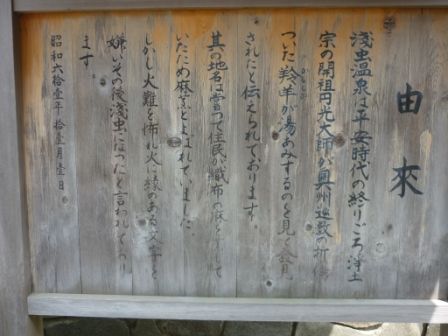 由来
浅虫温泉は平安時代の終りごろ浄土
宗の開祖円光大師が奥州巡教の折傷
ついた羚羊が湯あみするのを見て発見
されたと伝えられております。
其の地名は嘗つて住民が織布の麻をむして
いたため麻むしとよばれていました
しかし火難を怖れ火に縁のある文字を
嫌いその後浅虫になったと言われており
ます。
昭和六拾壹年拾壹月壹日